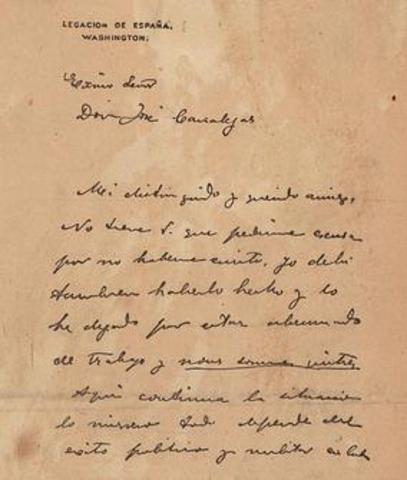 LEGACION DE ESPAÑA.
WASHINGTON.
Exmo Señor
Don José Canalejas
Mi distinguido y querido amigo,
No tiene V. que pedirme excusa
por no haberme escrito, yo debí
tambien haberlo hecho y lo
he dejado por estar abrumado
de trabajo y nous sommes quittes
Aqui continua la situacion
lo mismo todo depende del
exito politico y militar en Cuba